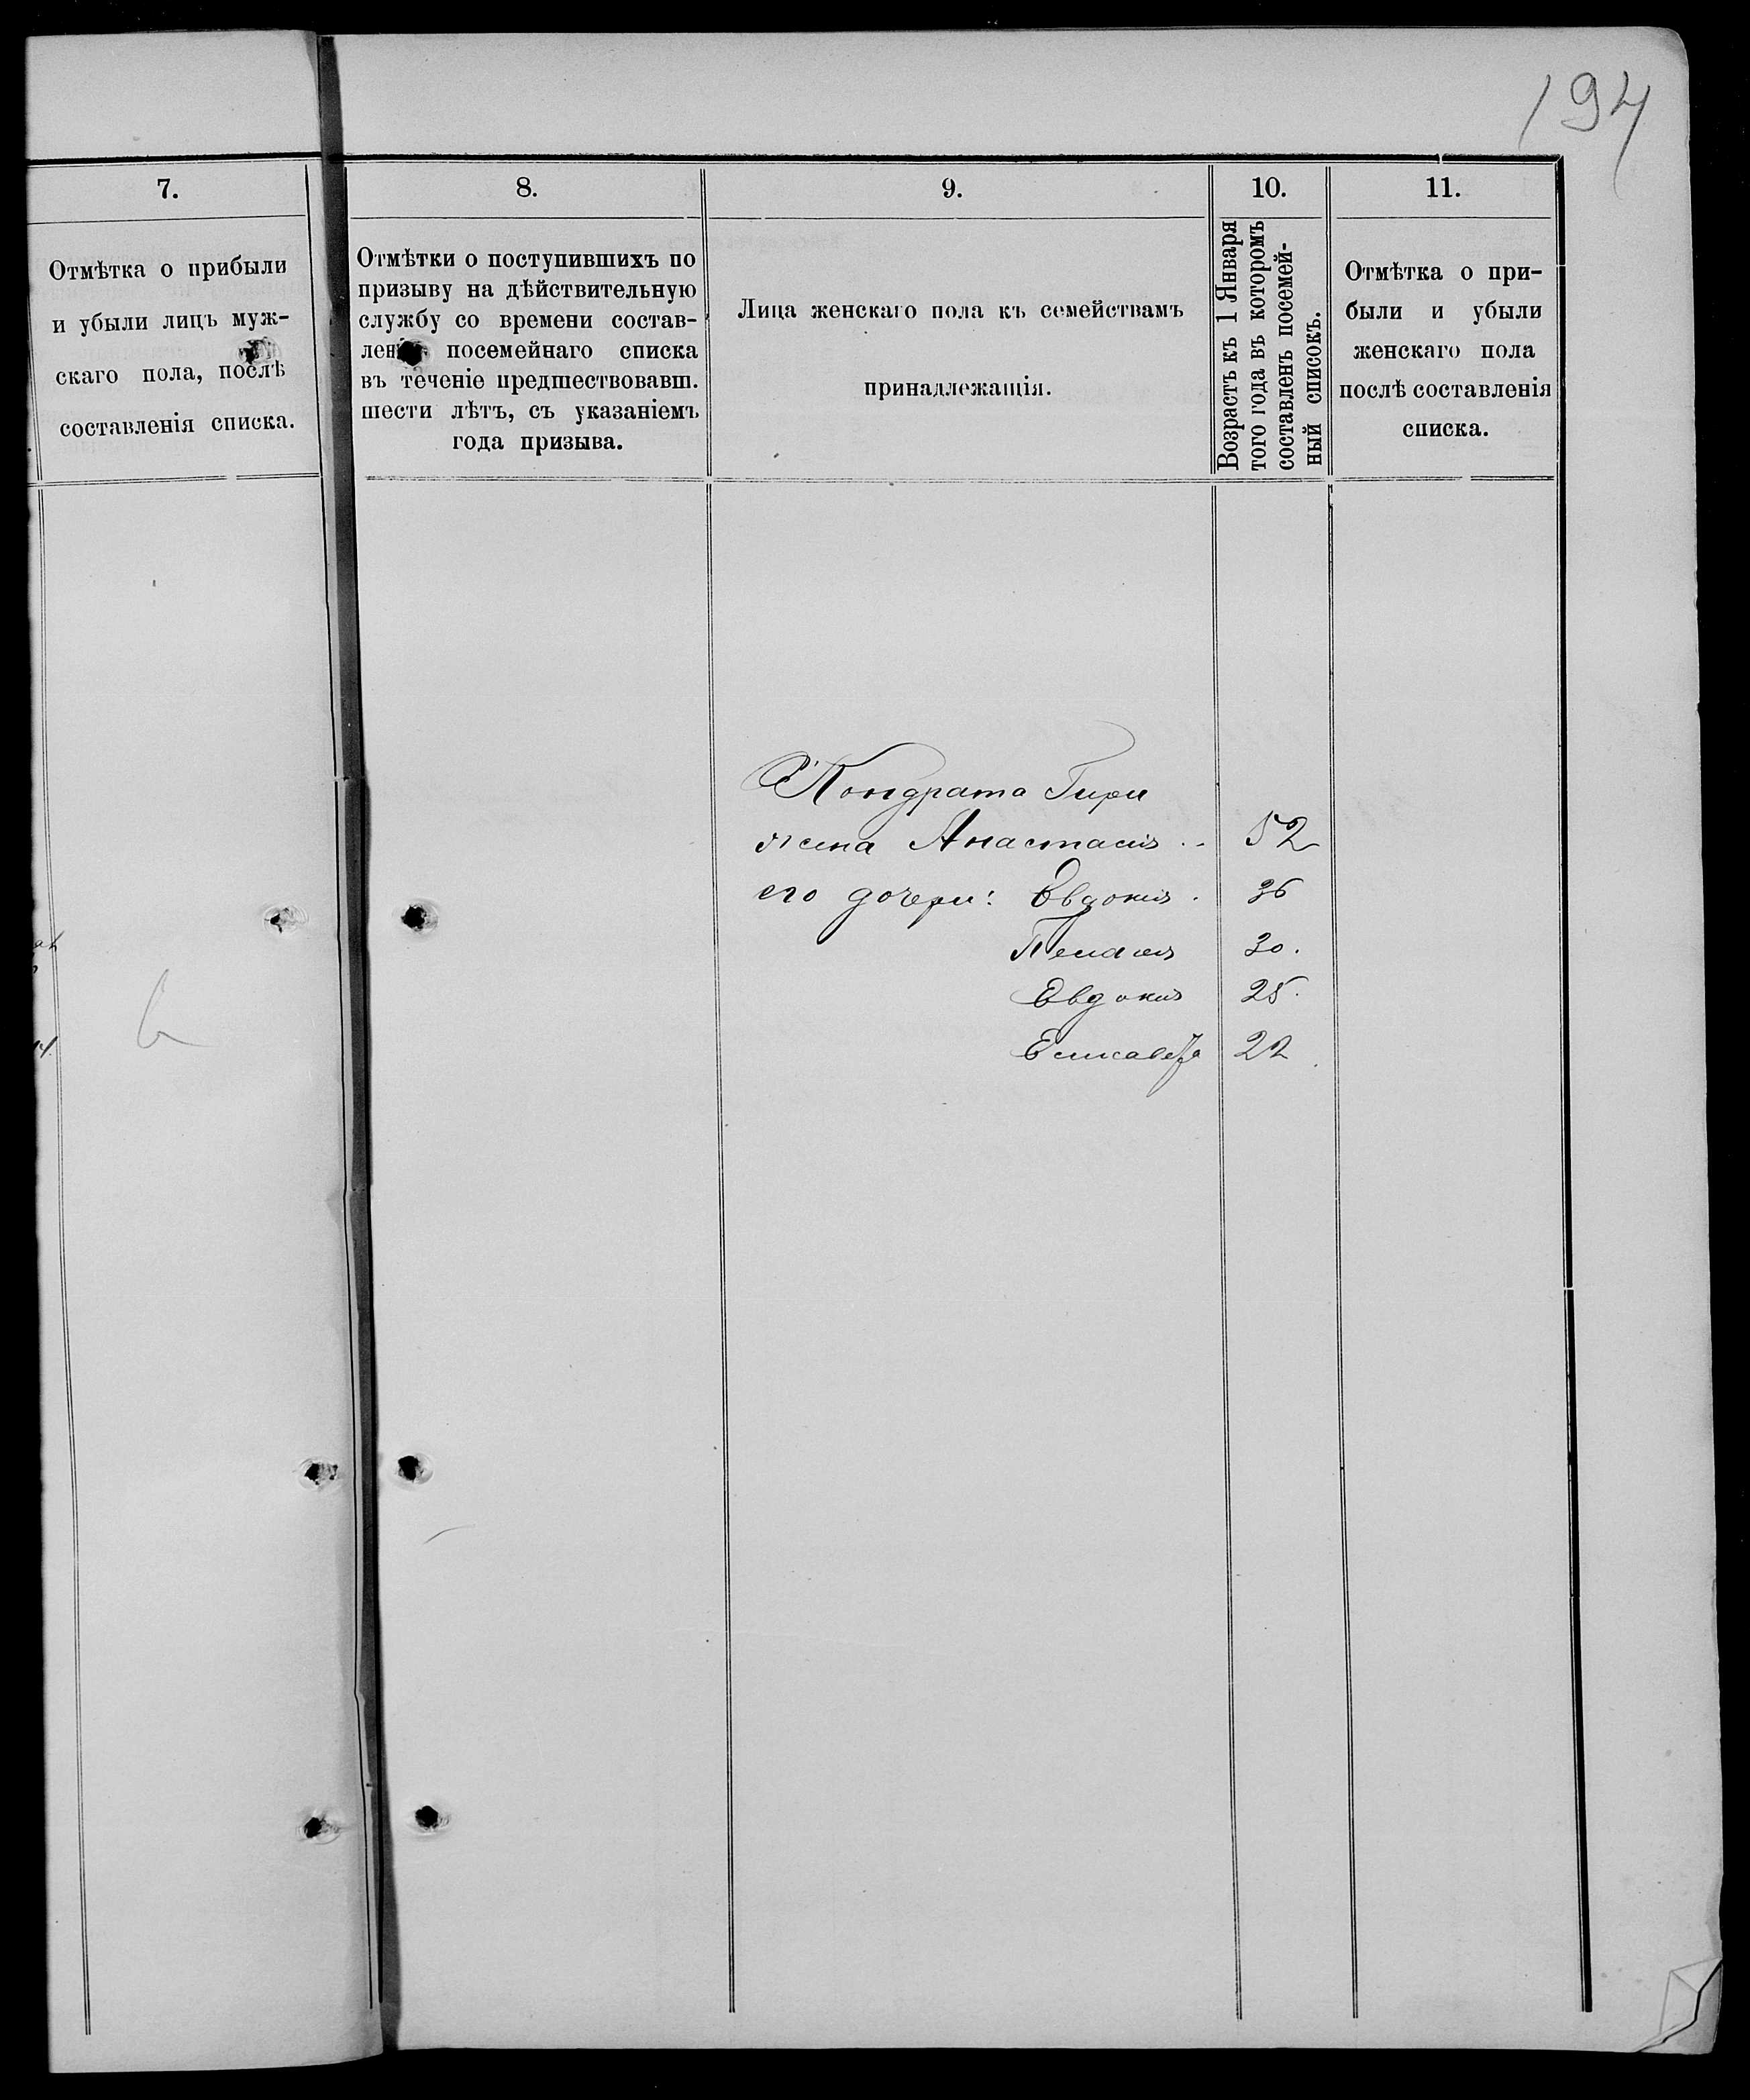 194
7.
Отмѣтка о прибыли
и убыли лицъ муж-
скаго пола, послѣ
составленія списка.
8.
Отмѣтки о поступившихъ по
призыву на дѣйствительную
службу со времени состав-
лен посемейнаго списка
въ теченіе предшествовавш.
шести лѣтъ, съ указаніемъ
года призыва.
9.
Лица женскаго пола къ семействамъ
принадлежащія.
10.
Возрастъ къ 1 Января
того года въ которомъ
составленъ посемей-
ный списокъ.
11.
Отмѣтка о при-
были и убыли
женскаго пола
послѣ составленія
списка.
Кондрата Гири
жена Анастасія .. 52
его дочери: Евдокія . 36
Пелагея 30.
Евдокія 25.
Елисавета 22